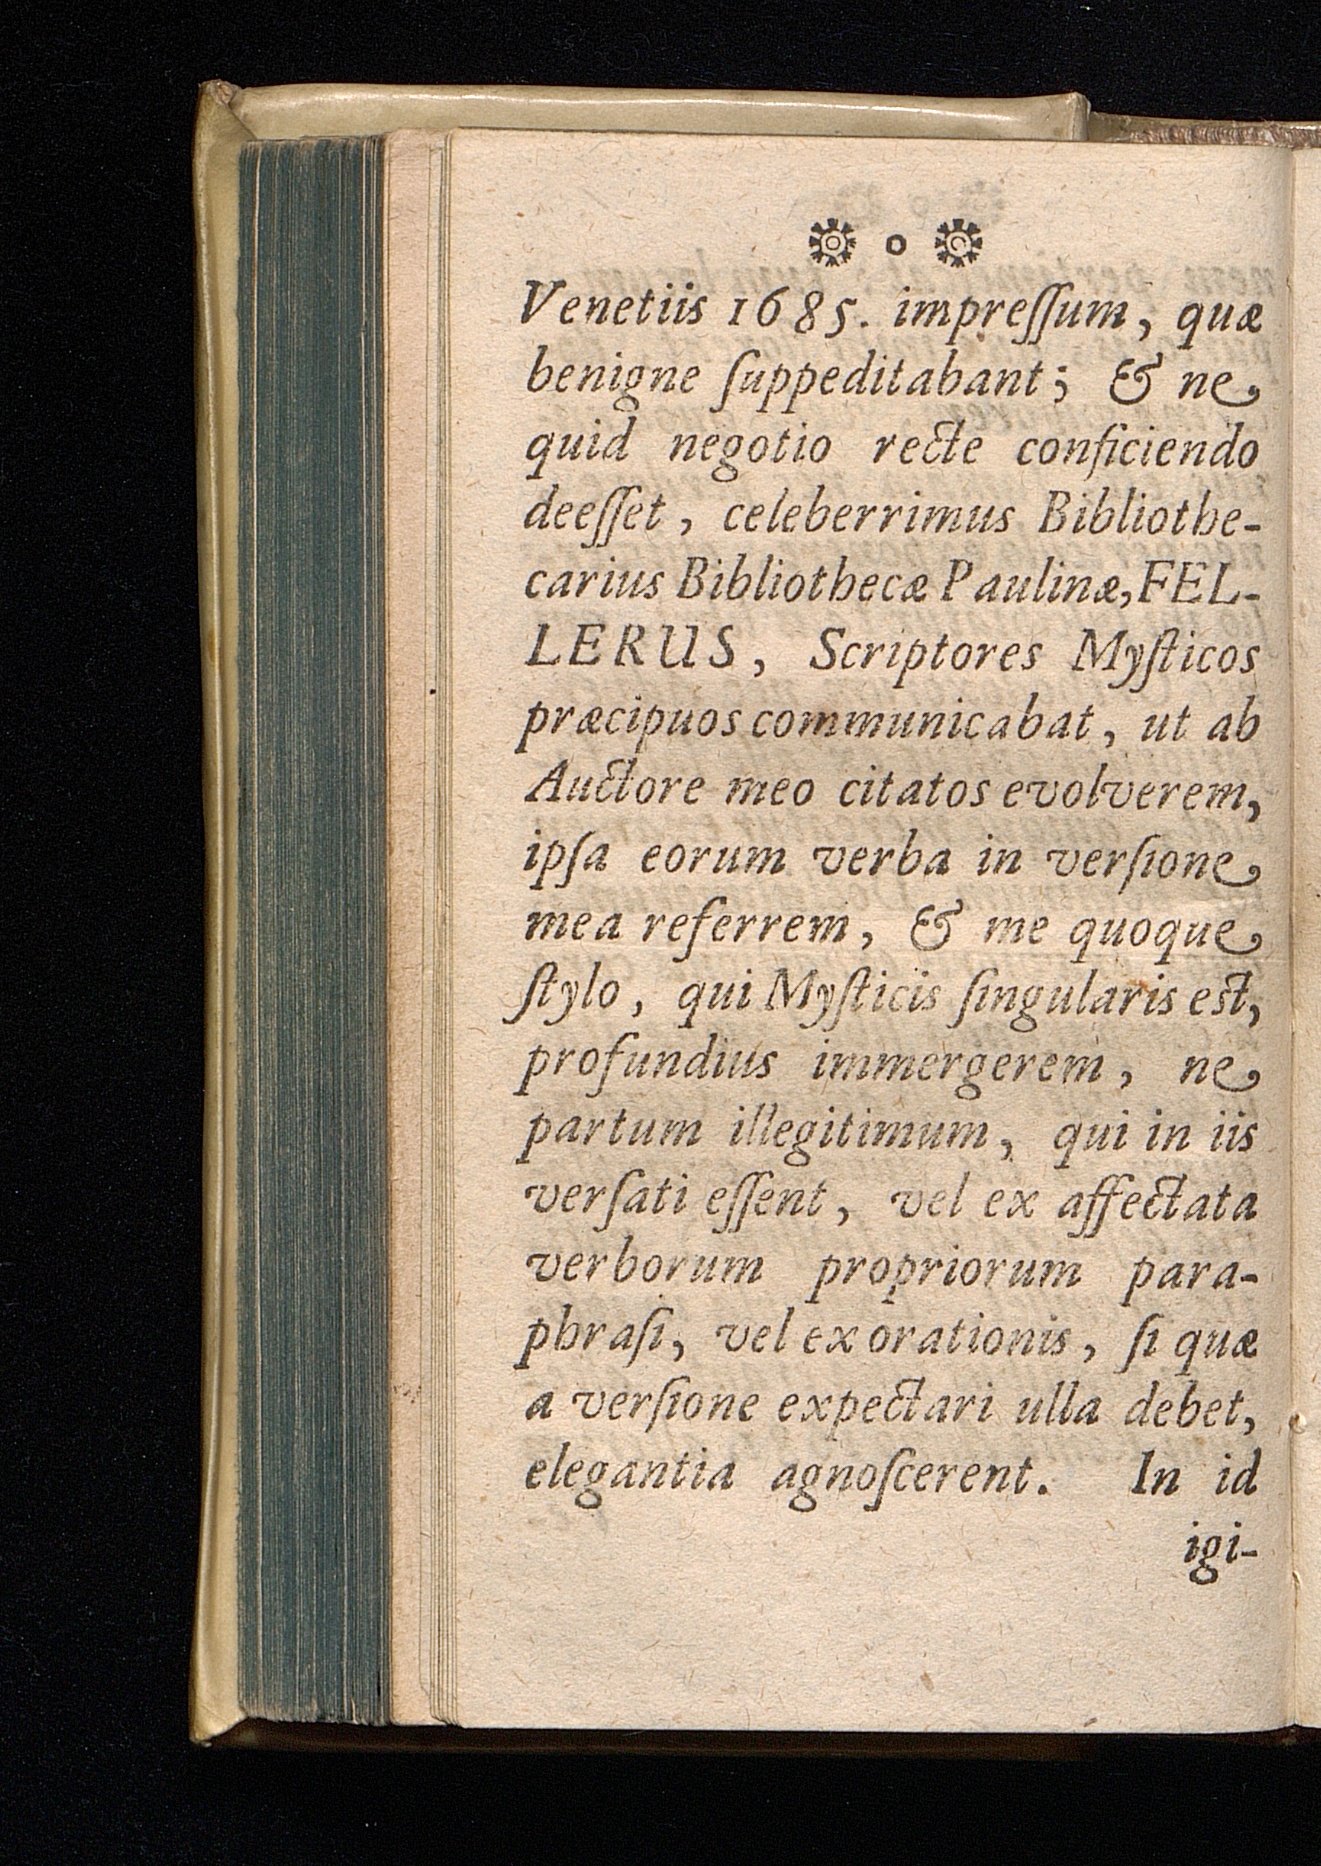 Venetiis 1685. impreſſum, quæ
benigne ſuppeditabant; & ne
quid negotio recte conficiendo
deeſſet, celeberrimus Bibliothe-
carius Bibliothecæ Paulinæ, FEL-
LERUS, Scriptores Myſticos
præcipuos communicabat, ut ab
Auctore meo citatos evolverem,
ipſa eorum verba in verſione
mea referrem, & me quoque
ſtylo, qui Myſticis ſingularis est,
profundius immergerem, ne
partum illegitimum, qui in iis
verſati eſſent, vel ex affectata
verborum propriorum para-
phraſi, vel ex orationis, ſi quæ
a verſione expectari ulla debet,
elegantia agnoſcerent. In id
igi-